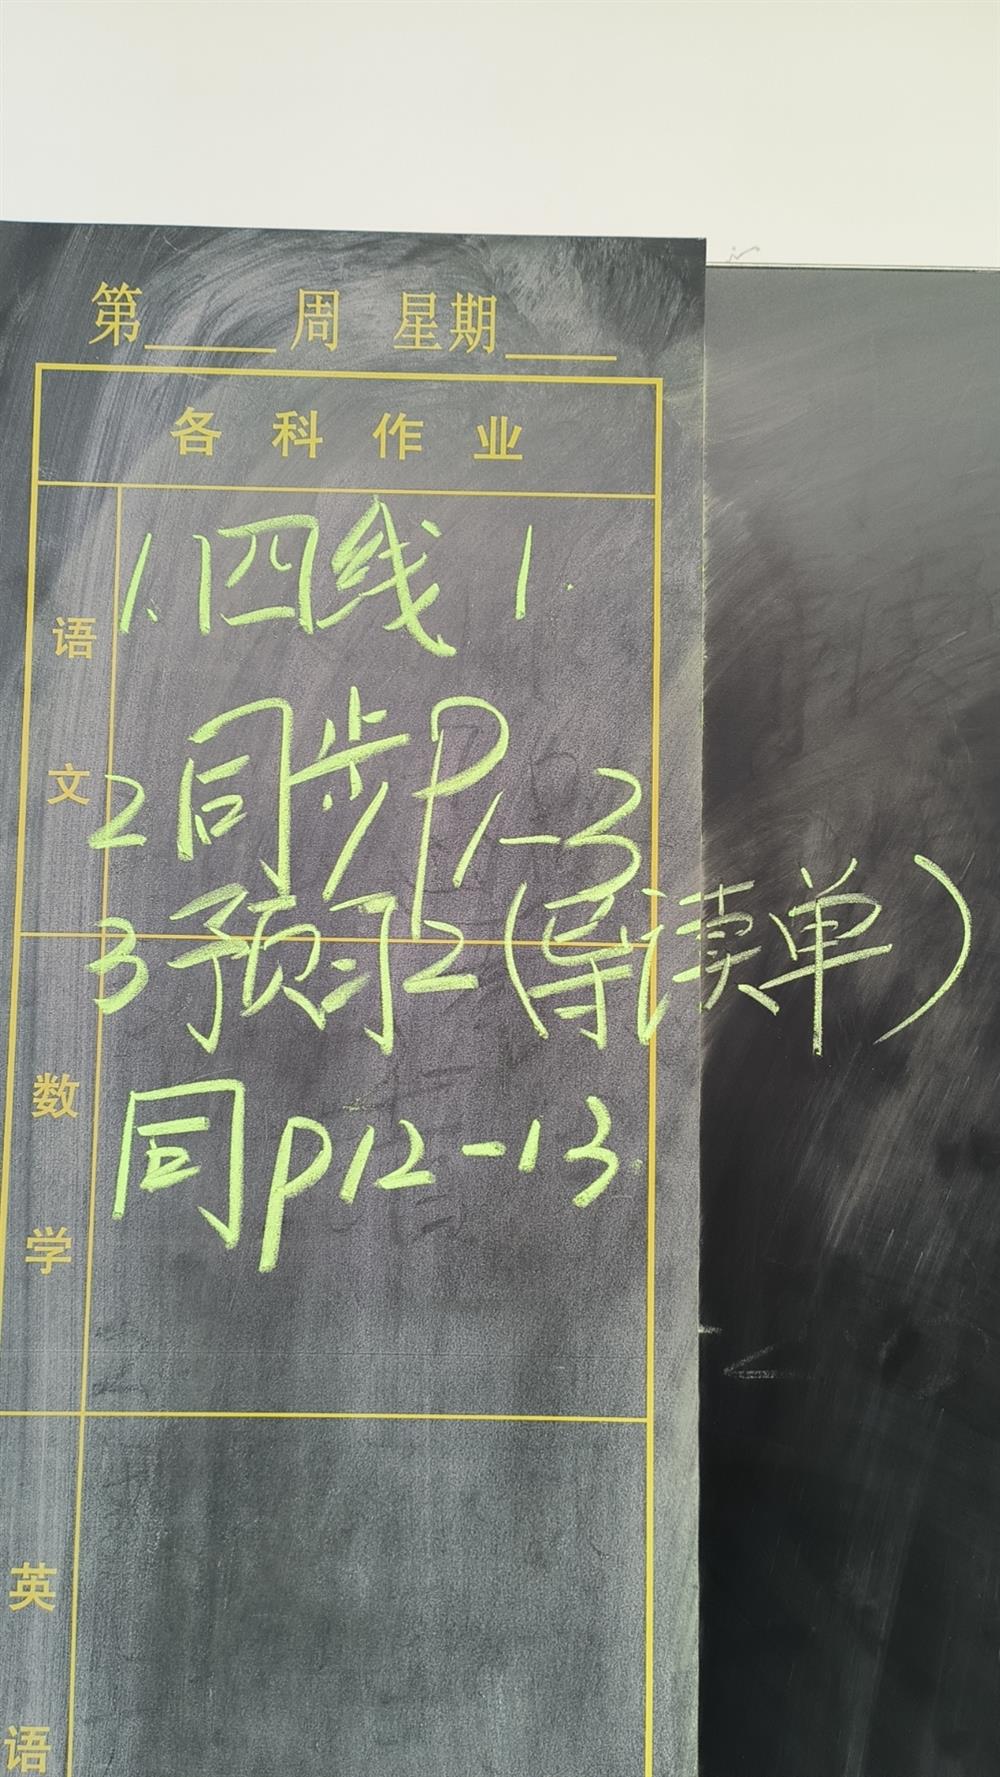 第____周 星期____
各科作业
语文
1、四线 1.
2 同步P1-3
3 预习2(导读单)
数学
同P12-13.
英语